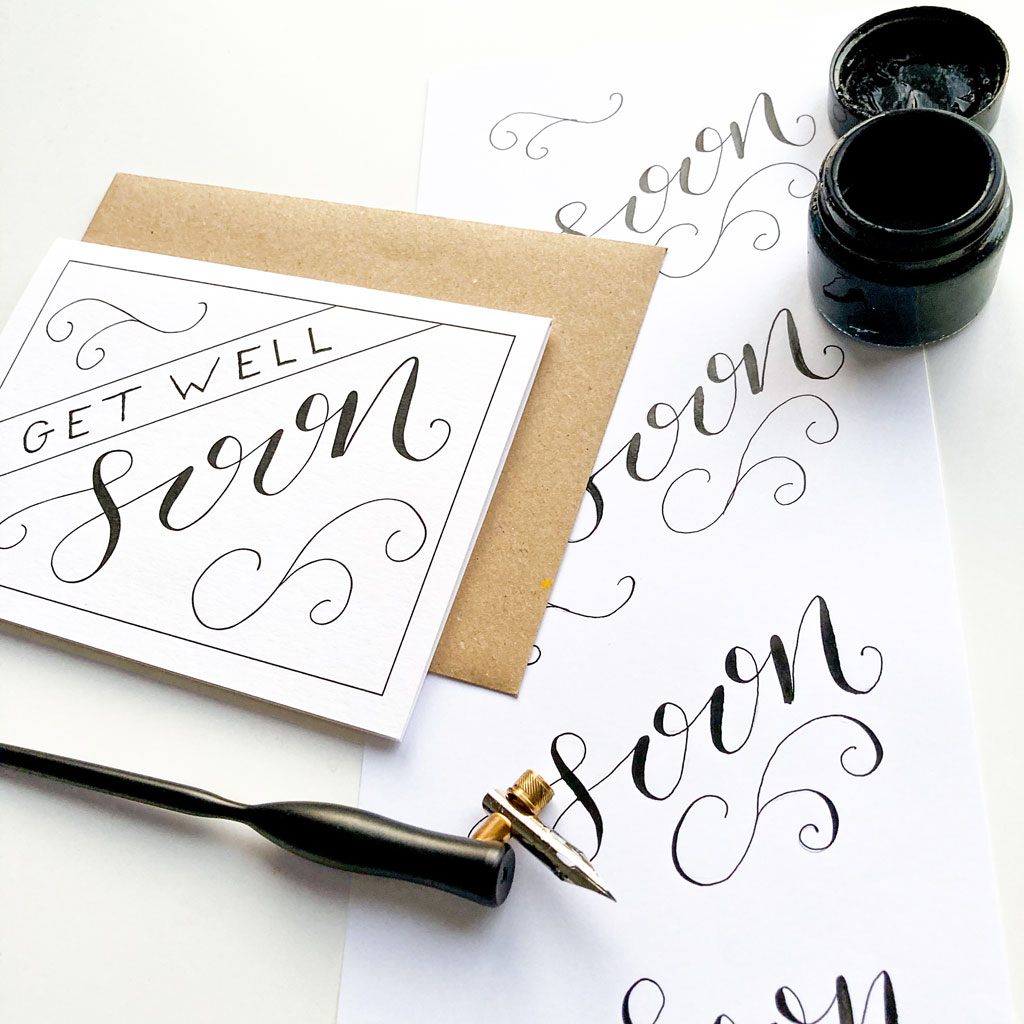 GET WELL
soon
soon
soon
soon
soon